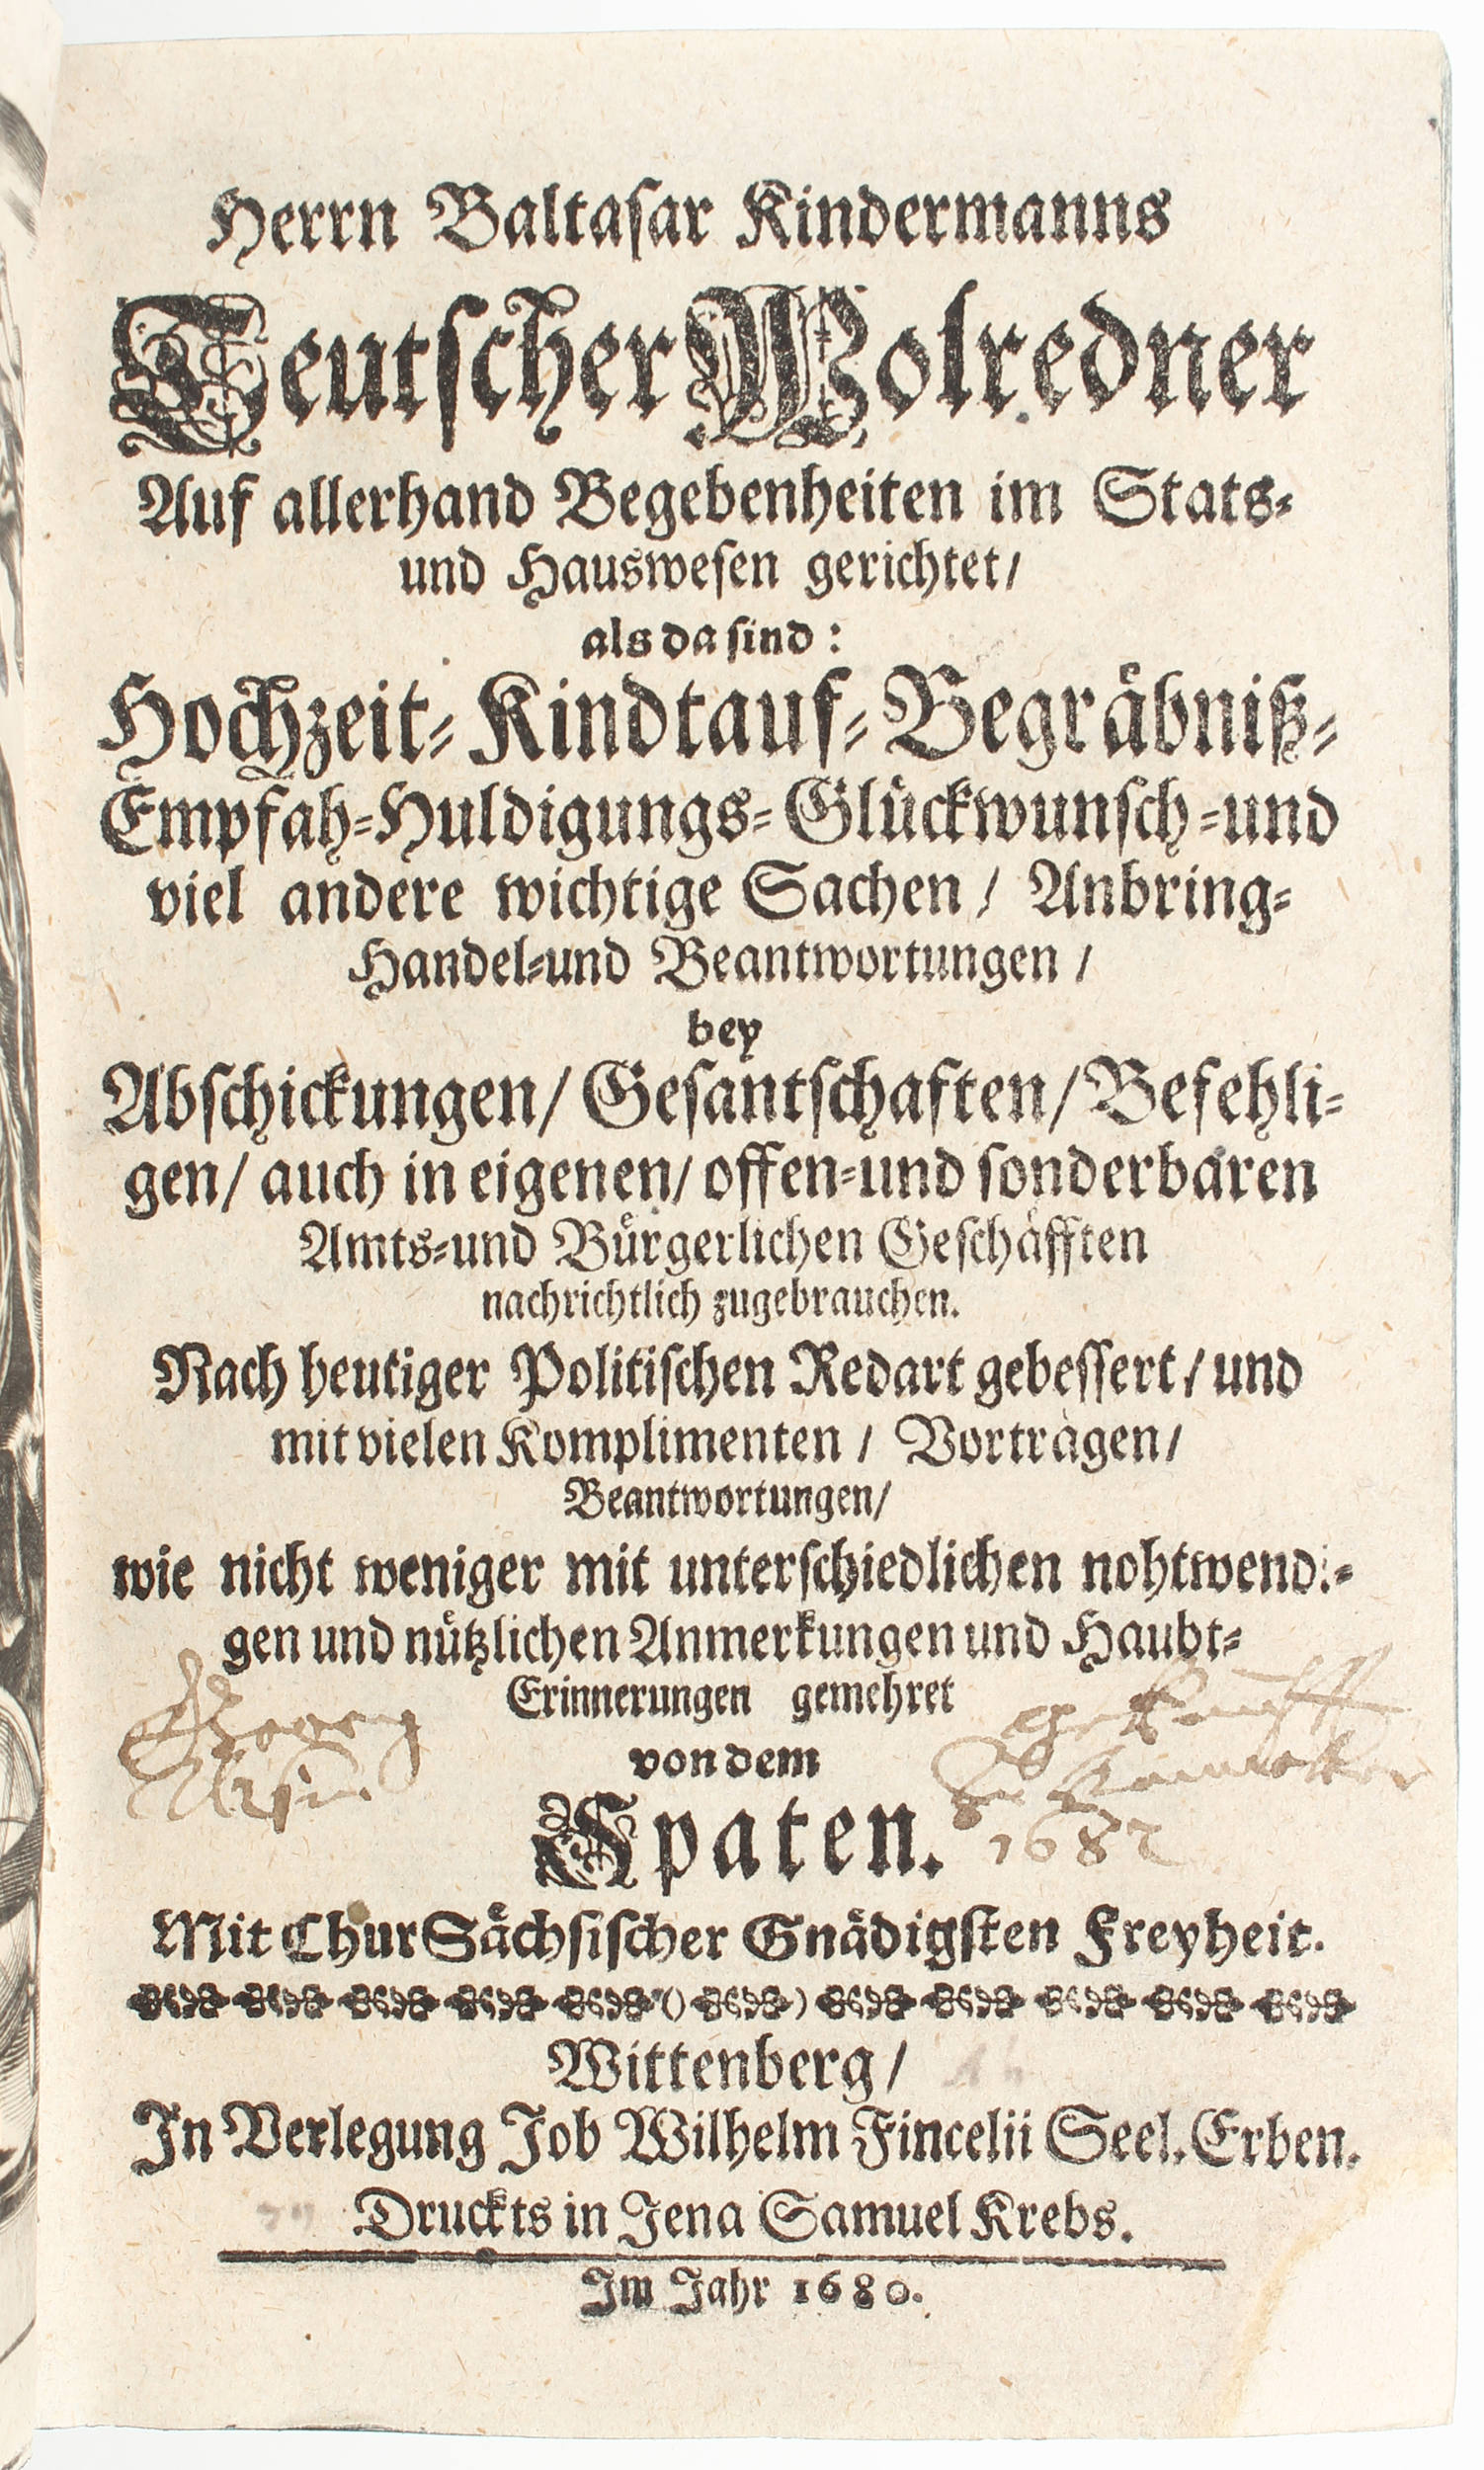 Herrn Baltaſar Kindermanns
Teutſcher Wolredner
Auf allerhand Begebenheiten im Stats-
und Hausweſen gerichtet/
als da ſind:
Hochzeit- Kindtauf- Begraͤbniß-
Empfah-Huldigungs-Gluͤckwunſch-und
viel andere wichtige Sachen / Anbring-
Handel-und Beantwortungen /
bey
Abſchickungen/ Geſantſchaften/ Befehli-
gen/ auch in eigenen/ offen-und ſonderbaren
Amts-und Buͤrgerlichen Geſchaͤfften
nachrichtlich zugebrauchen.
Nach heutiger Politiſchen Redart gebeſſert / und
mit vielen Komplimenten / Vortraͤgen/
Beantwortungen/
wie nicht weniger mit unterſchiedlichen nohtwendi-
gen und nuͤtzlichen Anmerkungen und Haubt-
Erinnerungen gemehret
von dem
Spaten.
gekaufft
1682
Mit ChurSaͤchſiſcher Gnaͤdigſten Freyheit.
Wittenberg /
In Verlegung Job Wilhelm Fincelii Seel. Erben.
Druckts in Jena Samuel Krebs.
Im Jahr 1680.